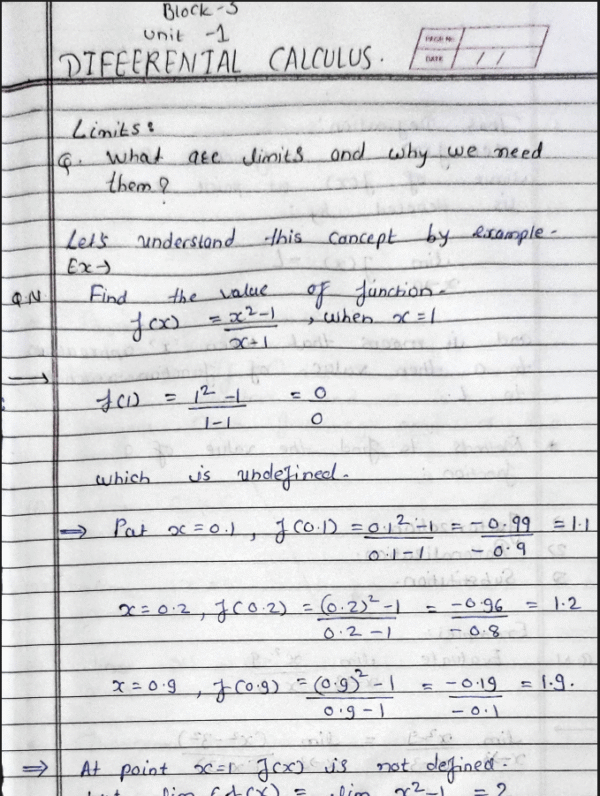 Block-3
Unit -1
DIFEERENTIAL CALCULUS.
PAGE No.
DATE / /
Limits:
Q. What are limits and why we need
them?
Let's understand this concept by example-
Ex→
Q.N Find the value of function.
f(x) = x²-1 / x-1 , when x=1
→ f(1) = 1²-1 / 1-1 = 0 / 0
which is undefined.
⇒ Put x=0.1, f(0.1) = 0.1²-1 / 0.1-1 = -0.99 / -0.9 = 1.1
x=0.2, f(0.2) = (0.2)²-1 / 0.2-1 = -0.96 / -0.8 = 1.2
x=0.9, f(0.9) = (0.9)²-1 / 0.9-1 = -0.19 / -0.1 = 1.9.
⇒ At point x=1 f(x) is not defined.
but lim f(x) = lim x²-1 = ?